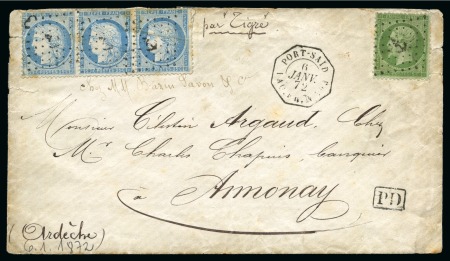 par Tigre
PORT-SAÏD
6
JANV.
72
Monsieur Célestin Argaud, Chez
Mr Charles Chapuis, banquier
à Annonay
PD
(Ardèche)
6.1.1872